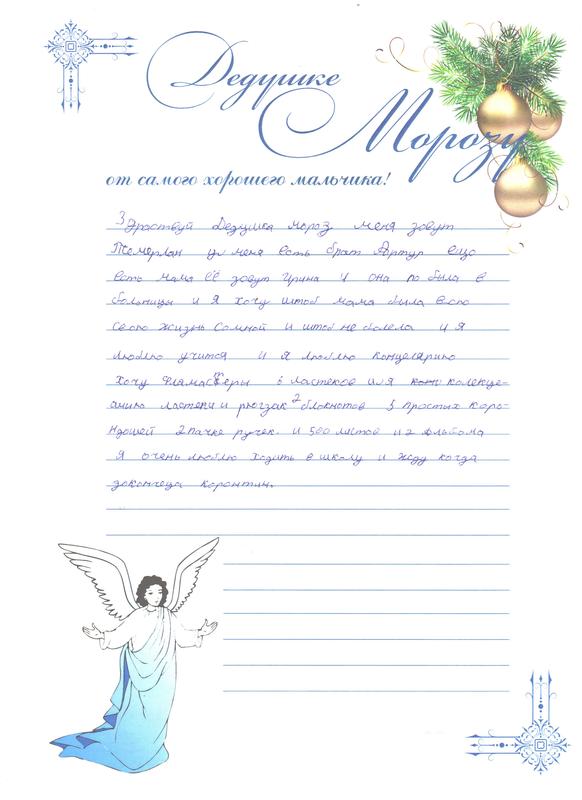 Дедушке
Морозу
от самого хорошего мальчика!
Здраствуй Дедушка мороз меня зовут
Темерлан уи меня есть брат Артур ещо
есть мама её зовут Ирина и она по была в
больницы и я хочу штоб мама была всю
свою жизнь сомной и штоб не болела и я
люблю учится и я люблю концелярию
хочу фламастеры 6 ластеков ил я колекце-
анию ластеки и рюгзак 2 блокнотов 3 простых каро-
ндошей 2 пачке ручек. и 500 листов и 2 альбома
Я очень люблю ходить в школу и жду когда
закончеца карантин.